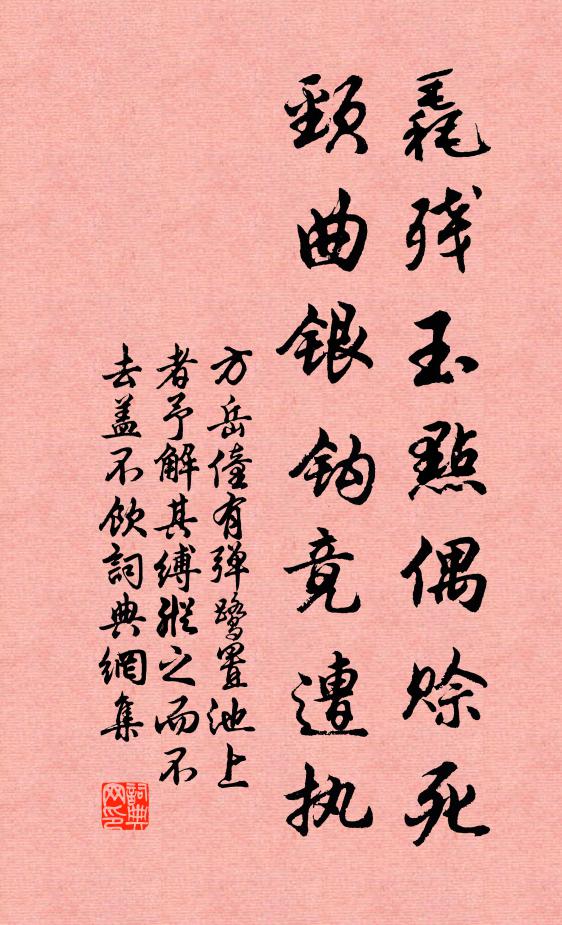 毳残玉點偶赊死
頸曲银钩竟遭执
方岳僮有弹鹭置池上
者予解其缚縱之而不
去盖不饮詞典網集
詞典网印